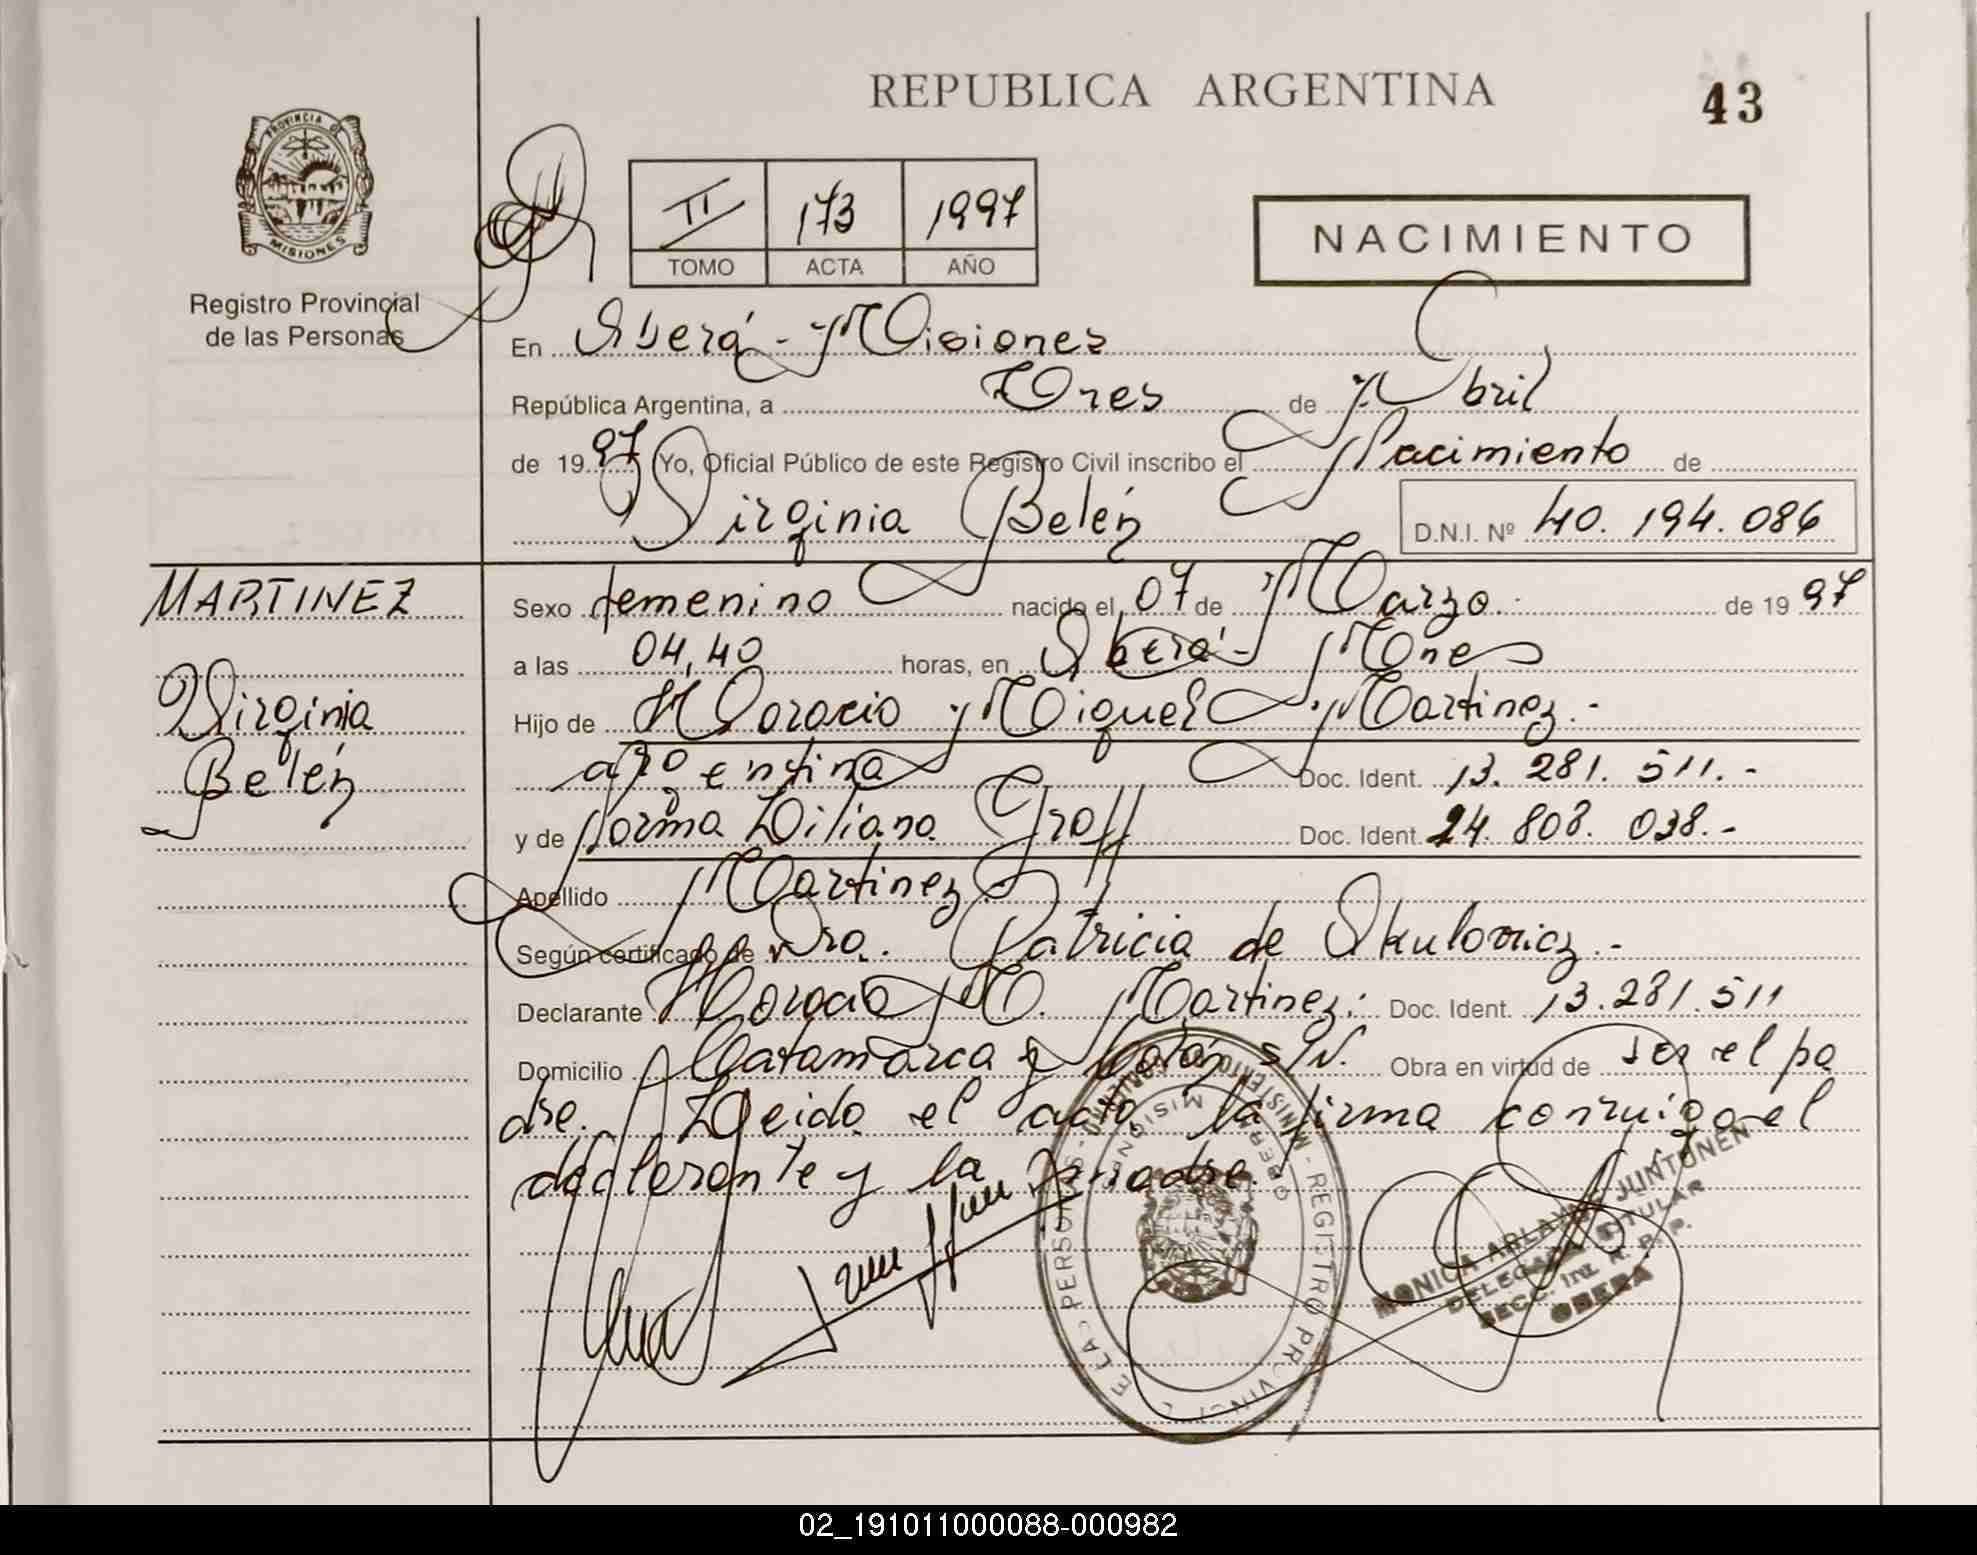 REPUBLICA ARGENTINA
43
PROVINCIA DE
MISIONES
Registro Provincial
de las Personas
II 173 1997
TOMO ACTA AÑO
NACIMIENTO
En Oberá - Misiones
República Argentina, a Tres de Abril
de 1997 Yo, Oficial Público de este Registro Civil inscribo el Nacimiento de
Virginia Belén D.N.I. Nº 40.194.086
MARTINEZ
Virginia
Belén
Sexo femenino nacido el 07 de Marzo de 1997
a las 04,40 horas, en Oberá - Mnes
Hijo de Horacio Miguel Martinez.-
argentina Doc. Ident. 13.281.511.-
y de Norma Liliana Groff Doc. Ident. 24.808.038.-
Apellido Martinez
Según certificado de Dra. Patricia de Skulovicz.-
Declarante Horacio M. Martinez; Doc. Ident. 13.281.511
Domicilio Catamarca y Colón s/N. Obra en virtud de ser el pa
dre. Leida el acta la firma conmigo el
declarante y la madre.
REGISTRO PROVINCIAL DE LAS PERSONAS - MINISTERIO DE GOBIERNO
MISIONES
MONICA JUNTUNEN
DELEGADA TITULAR
SECC. R. P. P.
OBERA
02_191011000088-000982